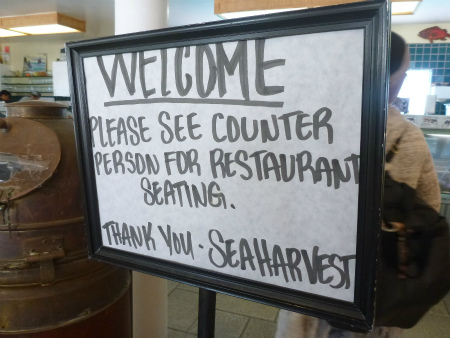 WELCOME
PLEASE SEE COUNTER
PERSON FOR RESTAURANT
SEATING.
THANK YOU - SEAHARVEST